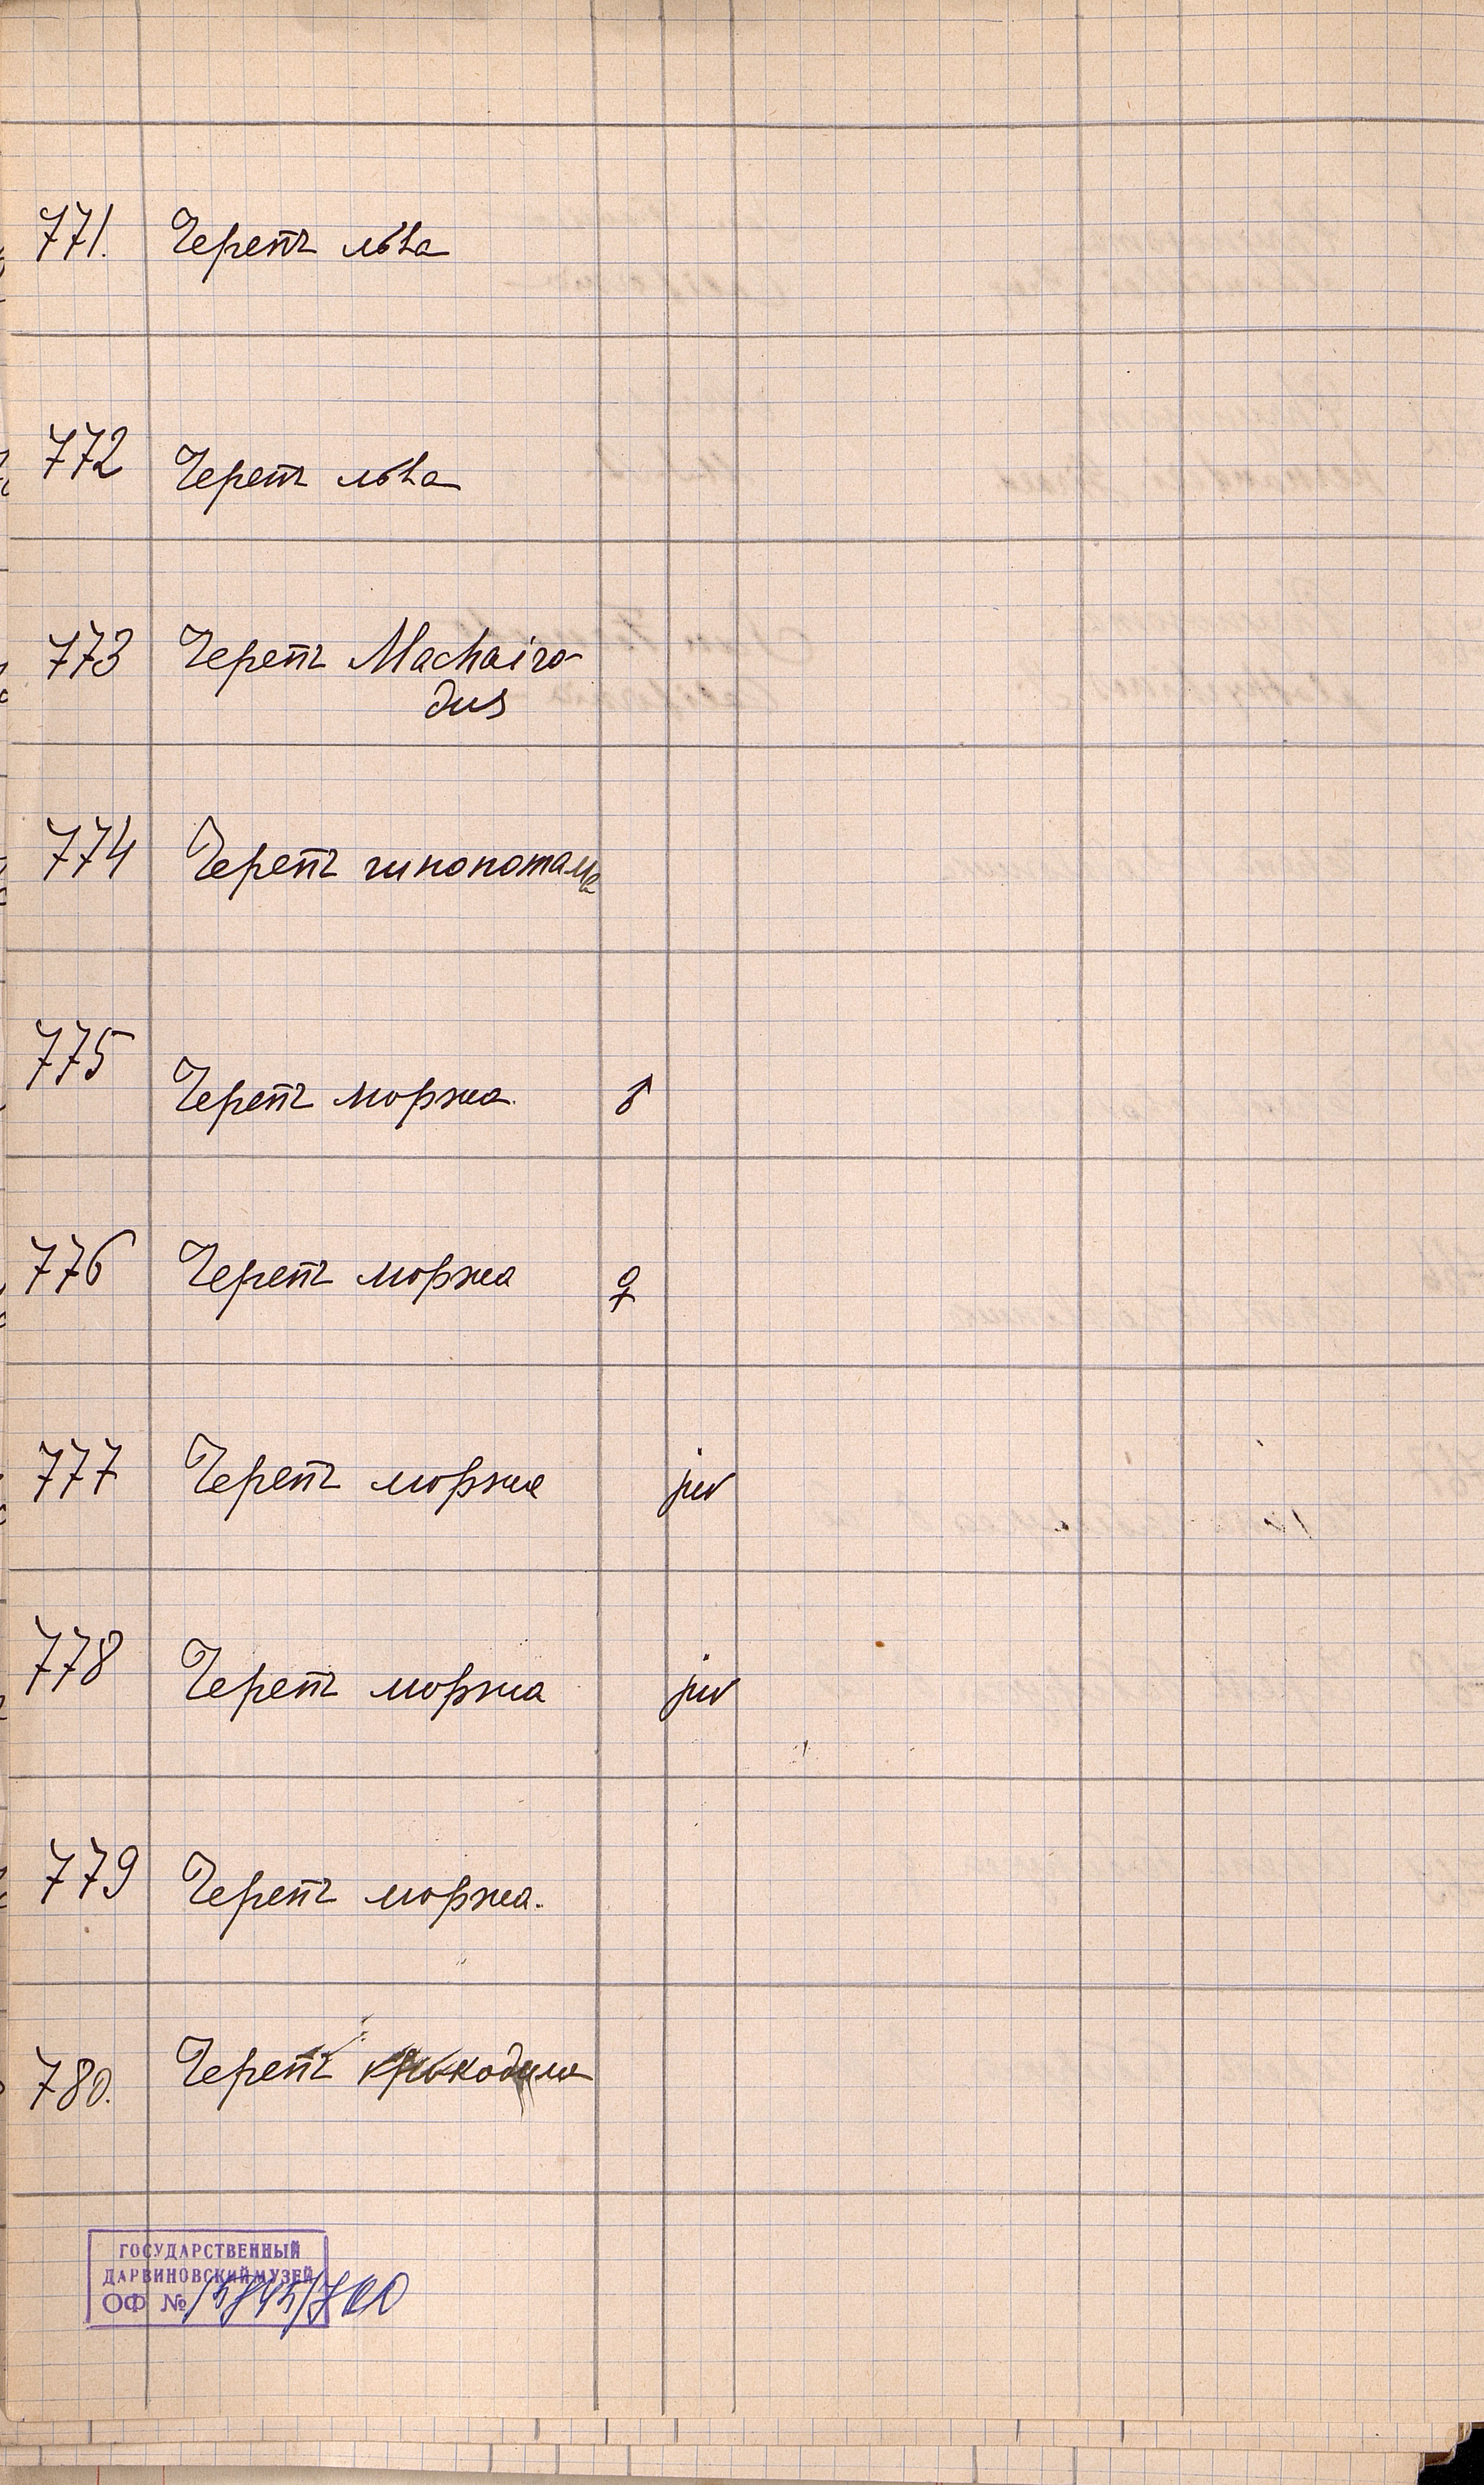 771. Черепъ льва
772 Черепъ льва
773 Черепъ Machairo-
dus
774 Черепъ гипопотама
775 Черепъ моржа. ♂
776 Черепъ моржа ♀
777 Черепъ моржа juv
778 Черепъ моржа juv
779 Черепъ моржа.
780. Черепъ крокодила
ГОСУДАРСТВЕННЫЙ
ДАРВИНОВСКИЙ МУЗЕЙ
ОФ №